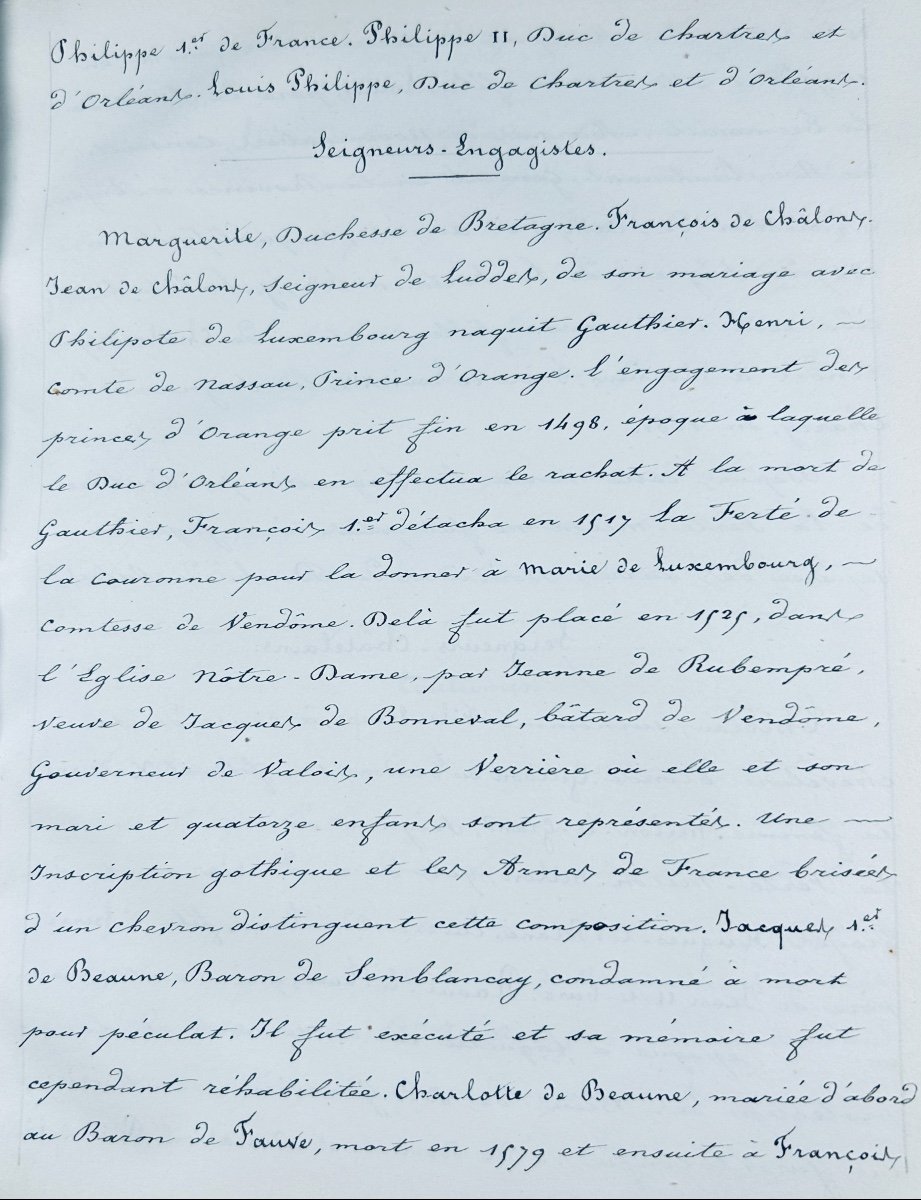 Philippe 1.er de France. Philippe II, Duc de Chartres et
d'Orléans. Louis Philippe, Duc de Chartres et d'Orléans.
Seigneurs-Engagistes.
Marguerite, Duchesse de Bretagne. François de Châlons.
Jean de Châlons, Seigneur de Luddes, de son mariage avec
Philipote de Luxembourg naquit Gauthier. Henri, —
Comte de Nassau, Prince d'Orange. L'engagement des
princes d'Orange prit fin en 1498, époque à laquelle
le Duc d'Orléans en effectua le rachat. A la mort de
Gauthier, François 1.er détacha en 1517 la Ferté de
la couronne pour la donner à Marie de Luxembourg, —
Comtesse de Vendôme. Delà fut placé en 1525, dans
l'Eglise Nôtre-Dame, par Jeanne de Rubempré,
veuve de Jacques de Bonneval, bâtard de Vendôme,
Gouverneur de Valois, une Verrière où elle et son
mari et quatorze enfans sont représentés. Une —
Inscription gothique et les Armes de France brisées
d'un chevron distinguent cette composition. Jacques 1.er
de Beaune, Baron de Semblancay, condamné à mort
pour péculat. Il fut exécuté et sa mémoire fut
cependant réhabilitée. Charlotte de Beaune, mariée d'abord
au Baron de Fauve, mort en 1579 et ensuite à François